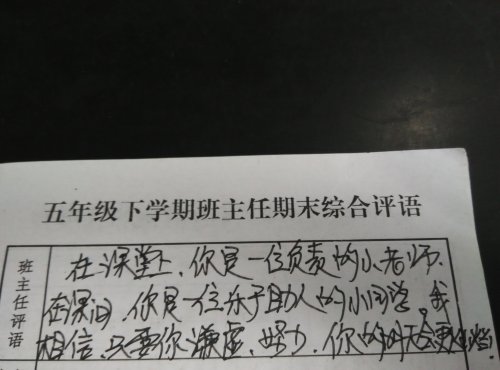 五年级下学期班主任期末综合评语
班主任评语
在课堂上，你是一位负责的小老师，
在课间，你是一位乐于助人的小同学。我
相信，只要你谦虚、努力，你的明天会更